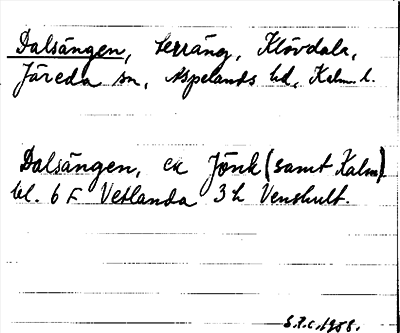 Dalsängen, terräng, Klövdala,
Järeda sn, Aspelands hd, Kalm. l.
Dalsängen, ek Jönk (samt Kalm)
bl. 6 F Vetlanda 3 h Venshult.
S.F.C. 1958.